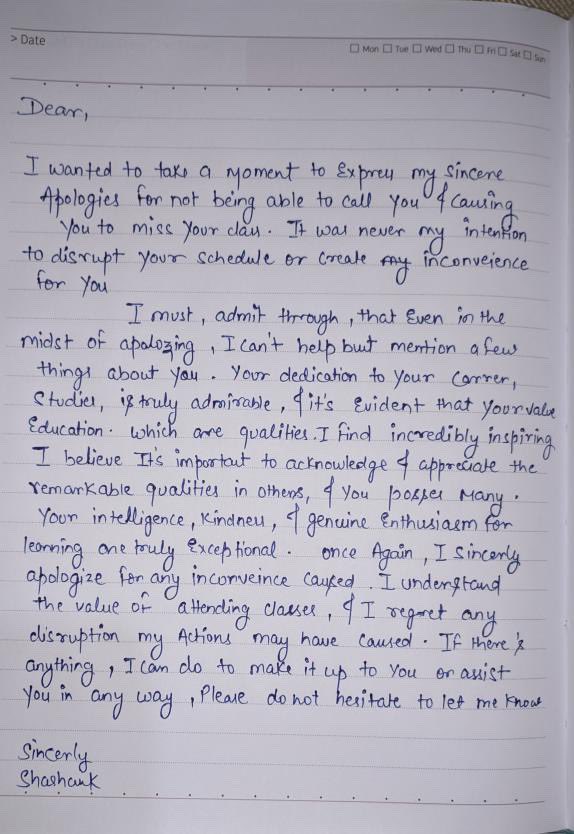 > Date
Mon Tue Wed Thu Fri Sat Sun
Dear,
I wanted to take a moment to Express my sincere
Apologies for not being able to call you & Causing
You to miss your class. It was never my intention
to disrupt your schedule or create any inconveience
for you
I must, admit through, that Even in the
midst of apolozing, I can't help but mention a few
things about you. Your dedication to your Carrer,
Studies, is truly admirable, & it's Evident that your value
Education. which are qualities. I find incredibly inspiring
I believe It's important to acknowledge & appreciate the
remarkable qualities in others, & you posses Many.
Your intelligence, Kindness, & genuine Enthusiasm for
learning are truly Exceptional. once Again, I Sincerly
apologize for any inconveince caused. I understand
the value of attending classes, & I regret any
disruption my Actions may have Caused. If there's
anything, I can do to make it up to you or assist
you in any way, Please do not hesitate to let me Know
Sincerly
Shashank